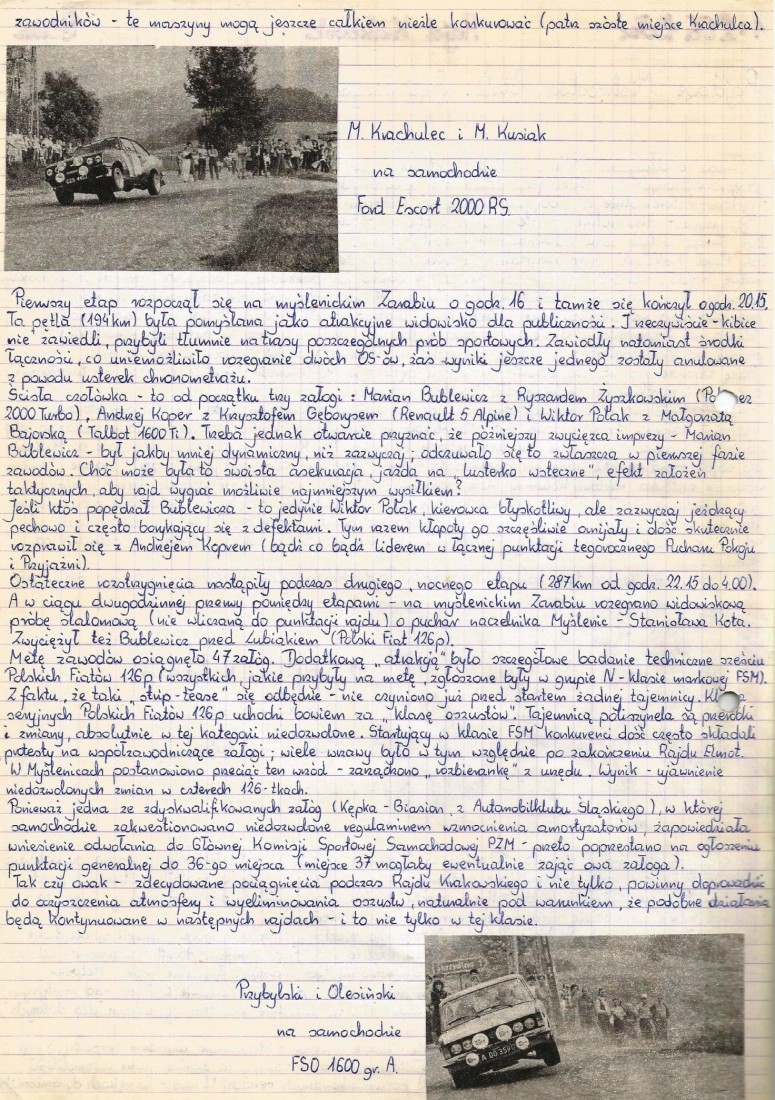 zawodników - te maszyny mogą jeszcze całkiem nieźle konkurować (patrz szóste miejsce Krachulca).
M. Krachulec i M. Kusiak
na samochodzie
Ford Escort 2000 RS.
Pierwszy etap rozpoczął się na myślenickim Zarabiu o godz. 16 i tamże się kończył o godz. 20.15.
Ta pętla (194 km) była pomyślana jako atrakcyjne widowisko dla publiczności. I rzeczywiście - kibice
nie zawiedli, przybyli tłumnie na trasy poszczególnych prób sportowych. Zawiodły natomiast środki
łączności, co uniemożliwiło rozegranie dwóch OS-ów, zaś wyniki jeszcze jednego zostały anulowane
z powodu usterek chronometrażu.
Ścisła czołówka - to od początku trzy załogi: Marian Bublewicz z Ryszardem Żyszkowskim (
2000 Turbo), Andrzej Koper z Krzysztofem Gęborysem (Renault 5 Alpine) i Wiktor Polak z Małgorzatą
Bajorską (Talbot 1600 Ti). Trzeba jednak otwarcie przyznać, że późniejszy zwycięzca imprezy - Marian
Bublewicz - był jakby mniej dynamiczny, niż zazwyczaj; odczuwało się to zwłaszcza w pierwszej fazie
zawodów. Choć może była to swoista asekuracja jazda na „lusterko wsteczne", efekt założeń
taktycznych, aby rajd wygrać możliwie najmniejszym wysiłkiem?
Jeśli ktoś popędzał Bublewicza - to jedynie Wiktor Polak, kierowca błyskotliwy, ale zazwyczaj jeżdżący
pechowo i często borykający się z defektami. Tym razem kłopoty go szczęśliwie omijały i dość skutecznie
rozprawił się z Andrzejem Koprem (bądź co bądź liderem w łącznej punktacji tegorocznego Pucharu Pokoju
i Przyjaźni).
Ostateczne rozstrzygnięcia nastąpiły podczas drugiego, nocnego etapu (287 km od godz. 22.15 do 4.00).
A w ciągu dwugodzinnej przerwy pomiędzy etapami - na myślenickim Zarabiu rozegrano widowiskową
próbę slalomową (nie wliczaną do punktacji rajdu) o puchar naczelnika Myślenic - Stanisława Kota.
Zwyciężył też Bublewicz przed Lubiakiem (Polski Fiat 126p).
Metę zawodów osiągnęło 47 załóg. Dodatkową „atrakcją" było szczegółowe badanie techniczne sześciu
Polskich Fiatów 126p (wszystkich, jakie przybyły na metę, zgłoszone były w grupie N - klasie markowej FSM).
Z faktu, że taki „strip-tease" się odbędzie - nie czyniono już przed startem żadnej tajemnicy.
seryjnych Polskich Fiatów 126p uchodzi bowiem za „klasę oszustów". Tajemnicą poliszynela są przeróbki
i zmiany, absolutnie w tej kategorii niedozwolone. Startujący w klasie FSM konkurenci dość często składali
protesty na współzawodniczące załogi; wiele wrzawy było w tym względzie po zakończeniu Rajdu Elmot.
W Myślenicach postanowiono przeciąć ten wrzód - zarządzono „rozbierankę" z urzędu. Wynik - ujawnienie
niedozwolonych zmian w czterech 126-tkach.
Ponieważ jedna ze zdyskwalifikowanych załóg (Kępka - Biasion z Automobilklubu Śląskiego), w której
samochodzie zakwestionowano niedozwolone regulaminem wzmocnienia amortyzatorów, zapowiedziała
wniesienie odwołania do Głównej Komisji Sportowej Samochodowej PZM - przeto poprzestano na ogłoszeniu
punktacji generalnej do 36-go miejsca (miejsce 37 mogłaby ewentualnie zająć owa załoga).
Tak czy owak - zdecydowane pociągnięcia podczas Rajdu Krakowskiego i nie tylko, powinny doprowadzić
do oczyszczenia atmosfery i wyeliminowania oszustw, naturalnie pod warunkiem, że podobne działania
będą kontynuowane w następnych rajdach - i to nie tylko w tej klasie.
Przybylski i Olesiński
na samochodzie
FSO 1600 gr. A.